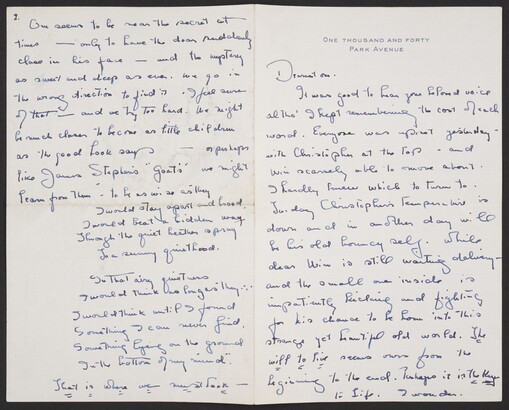 ONE THOUSAND AND FORTY
PARK AVENUE
Dearest on.
It was good to hear your beloved voice
altho' I kept remembering the cost of each
word. Everyone was upset yesterday -
with Christopher at the top - and
Win scarcely able to move about.
I hardly knew which to turn to.
To-day Christopher's temperature is
down and in another day will
be his old bouncy self. While,
dear Win is still waiting delivery -
and the small one inside is
impatiently kicking and fighting
for his chance to be born into this
strange yet beautiful old world. The
will to live seems ours from the
beginning to the end. Perhaps it is the Key
to Life. I wonder.
2.
One seems to be near the secret at
times — only to have the door suddenly
close in his face — and the mystery
as sweet and deep as ever. We go in
the wrong direction to find it. I feel sure
of that — and we try too hard. We might
be much closer to become as little children
as the good book says — or perhaps
like James Stephens "Goats" we might
learn from them - to be as wise as they
I would stay apart and brood.
I would beat a hidden way
Through the quiet heather spray
To a sunny quiethood.
In that airy quietness
I would think as long as they ...
I would think until I found
Something I can never find,
Something lying on the ground
In the bottom of my mind"
That is where we must look —